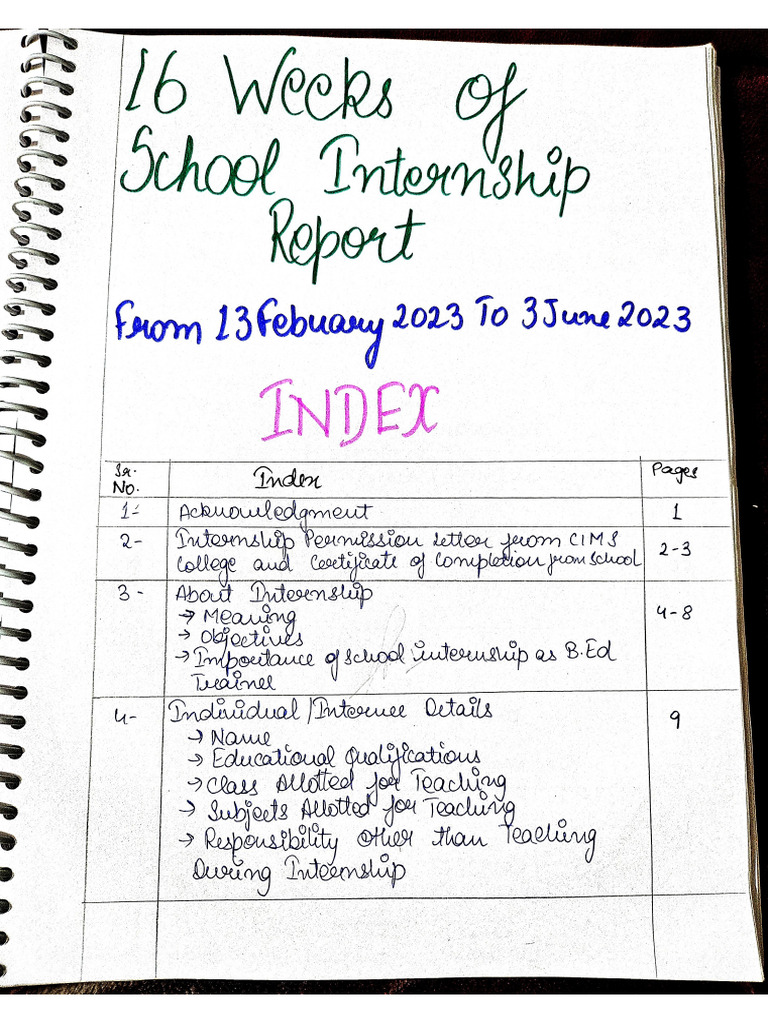 16 Weeks of
School Internship
Report
From 13 Febuary 2023 To 3 June 2023
INDEX
Sr. No. Index Pages
1- Acknowledgment 1
2- Internship Permission Letter from CIMS 2-3
College and Certificate of Completion from School
3- About Internship 4-8
→ Meaning
→ Objectives
→ Importance of school internship as B.Ed
Trainee
4- Individual/Internee Details 9
→ Name
→ Educational Qualifications
→ Class Allotted for Teaching
→ Subjects Allotted for Teaching
→ Responsibility Other than Teaching
During Internship